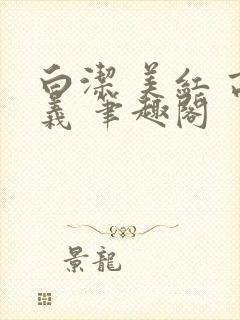 白潔 美紅 高
義 筆趣閣
景龍